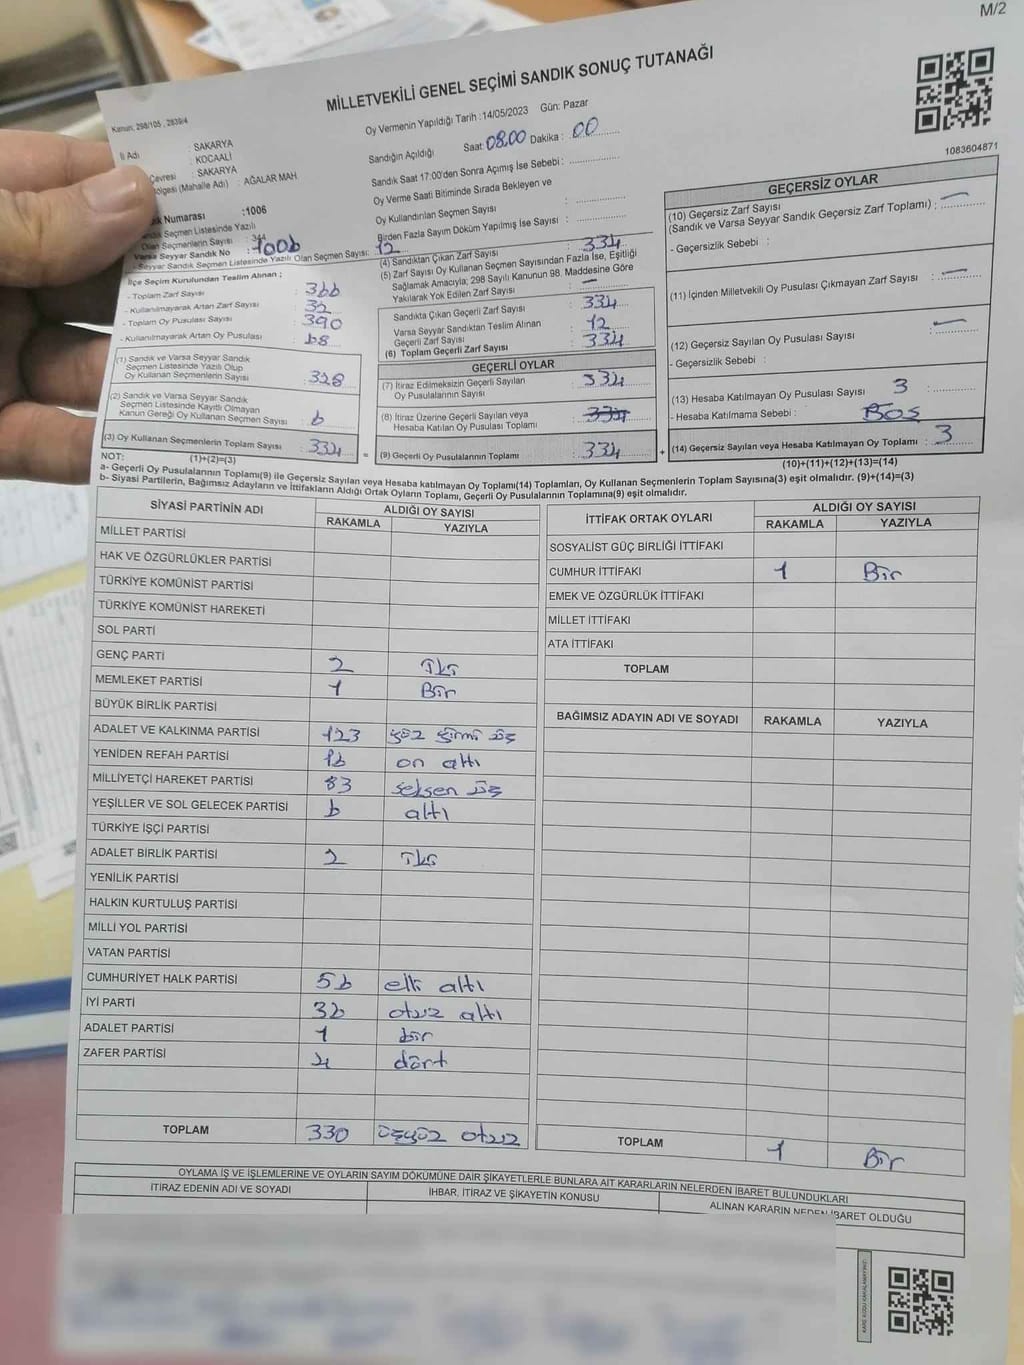 M/2
MİLLETVEKİLİ GENEL SEÇİMİ SANDIK SONUÇ TUTANAĞI
1083604871
Kanun: 298/105 , 2839/4
Oy Vermenin Yapıldığı Tarih : 14/05/2023 Gün: Pazar
İl Adı : SAKARYA
: KOCAALİ
Çevresi : SAKARYA
(Mahalle Adı) : AĞALAR MAH
Numarası :1006
Seçmen Listesinde Yazılı
Olan Seçmenlerin Sayısı : 344
Varsa Seyyar Sandık No : 1006
- Seyyar Sandık Seçmen Listesinde Yazılı Olan Seçmen Sayısı: 12
İlçe Seçim Kurulundan Teslim Alınan ;
- Toplam Zarf Sayısı : 366
- Kullanılmayarak Artan Zarf Sayısı : 32
- Toplam Oy Pusulası Sayısı : 390
- Kullanılmayarak Artan Oy Pusulası : 68
(1) Sandık ve Varsa Seyyar Sandık
Seçmen Listesinde Yazılı Olup
Oy Kullanan Seçmenlerin Sayısı : 328
(2) Sandık ve Varsa Seyyar Sandık
Seçmen Listesinde Kayıtlı Olmayan
Kanun Gereği Oy Kullanan Seçmen Sayısı : 6
(3) Oy Kullanan Seçmenlerin Toplam Sayısı : 334
Sandığın Açıldığı Saat: 08.00 Dakika : 00
Sandık Saat 17:00'den Sonra Açımış İse Sebebi :
Oy Verme Saati Bitiminde Sırada Bekleyen ve
Oy Kullandırılan Seçmen Sayısı :
Birden Fazla Sayım Döküm Yapılmış İse Sayısı :
(4) Sandıktan Çıkan Zarf Sayısı : 334
(5) Zarf Sayısı Oy Kullanan Seçmen Sayısından Fazla İse, Eşitliği
Sağlamak Amacıyla; 298 Sayılı Kanunun 98. Maddesine Göre
Yakılarak Yok Edilen Zarf Sayısı : —
Sandıkta Çıkan Geçerli Zarf Sayısı : 334
Varsa Seyyar Sandıktan Teslim Alınan
Geçerli Zarf Sayısı : 12
(6) Toplam Geçerli Zarf Sayısı : 334
GEÇERLİ OYLAR
(7) İtiraz Edilmeksizin Geçerli Sayılan
Oy Pusulalarının Sayısı : 334
(8) İtiraz Üzerine Geçerli Sayılan veya
Hesaba Katılan Oy Pusulası Toplamı :
(9) Geçerli Oy Pusulalarının Toplamı : 334
GEÇERSİZ OYLAR
(10) Geçersiz Zarf Sayısı
(Sandık ve Varsa Seyyar Sandık Geçersiz Zarf Toplamı) : —
- Geçersizlik Sebebi :
(11) İçinden Milletvekili Oy Pusulası Çıkmayan Zarf Sayısı : —
(12) Geçersiz Sayılan Oy Pusulası Sayısı : —
- Geçersizlik Sebebi :
(13) Hesaba Katılmayan Oy Pusulası Sayısı : 3
- Hesaba Katılmama Sebebi : Boş
(14) Geçersiz Sayılan veya Hesaba Katılmayan Oy Toplamı : 3
NOT: (1)+(2)=(3)
(10)+(11)+(12)+(13)=(14)
a- Geçerli Oy Pusulalarının Toplamı(9) ile Geçersiz Sayılan veya Hesaba katılmayan Oy Toplamı(14) Toplamları, Oy Kullanan Seçmenlerin Toplam Sayısına(3) eşit olmalıdır. (9)+(14)=(3)
b- Siyasi Partilerin, Bağımsız Adayların ve İttifakların Aldığı Ortak Oyların Toplamı, Geçerli Oy Pusulalarının Toplamına(9) eşit olmalıdır.
SİYASİ PARTİNİN ADI ALDIĞI OY SAYISI
RAKAMLA YAZIYLA
MİLLET PARTİSİ
HAK VE ÖZGÜRLÜKLER PARTİSİ
TÜRKİYE KOMÜNİST PARTİSİ
TÜRKİYE KOMÜNİST HAREKETİ
SOL PARTİ
GENÇ PARTİ 2 İki
MEMLEKET PARTİSİ 1 Bir
BÜYÜK BİRLİK PARTİSİ
ADALET VE KALKINMA PARTİSİ 123 yüz yirmi üç
YENİDEN REFAH PARTİSİ 16 on altı
MİLLİYETÇİ HAREKET PARTİSİ 83 seksen üç
YEŞİLLER VE SOL GELECEK PARTİSİ 6 altı
TÜRKİYE İŞÇİ PARTİSİ
ADALET BİRLİK PARTİSİ 2 İki
YENİLİK PARTİSİ
HALKIN KURTULUŞ PARTİSİ
MİLLİ YOL PARTİSİ
VATAN PARTİSİ
CUMHURİYET HALK PARTİSİ 56 elli altı
İYİ PARTİ 36 otuz altı
ADALET PARTİSİ 1 bir
ZAFER PARTİSİ 4 dört
TOPLAM 330 üçyüz otuz
İTTİFAK ORTAK OYLARI ALDIĞI OY SAYISI
RAKAMLA YAZIYLA
SOSYALİST GÜÇ BİRLİĞİ İTTİFAKI
CUMHUR İTTİFAKI 1 Bir
EMEK VE ÖZGÜRLÜK İTTİFAKI
MİLLET İTTİFAKI
ATA İTTİFAKI
TOPLAM
BAĞIMSIZ ADAYIN ADI VE SOYADI RAKAMLA YAZIYLA
TOPLAM 1 Bir
OYLAMA İŞ VE İŞLEMLERİNE VE OYLARIN SAYIM DÖKÜMÜNE DAİR ŞİKAYETLERLE BUNLARA AİT KARARLARIN NELERDEN İBARET BULUNDUKLARI
İTİRAZ EDENİN ADI VE SOYADI İHBAR, İTİRAZ VE ŞİKAYETİN KONUSU ALINAN KARARIN NEDEN İBARET OLDUĞU